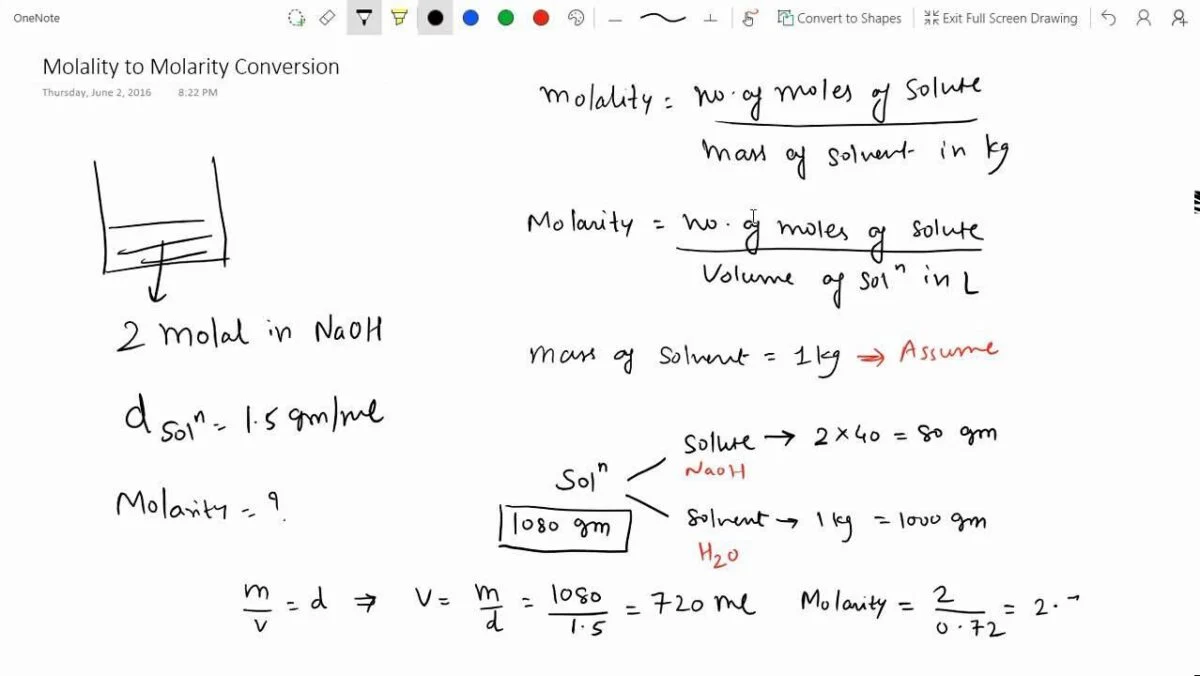 OneNote
Convert to Shapes
Exit Full Screen Drawing
Molality to Molarity Conversion
Thursday, June 2, 2016 8:22 PM
Molality = no. of moles of solute
mass of solvent in kg
Molarity = no. of moles of solute
Volume of solⁿ in L
2 molal in NaOH
mass of solvent = 1 kg ⇒ Assume
d solⁿ = 1.5 gm/ml
Solute → 2 × 40 = 80 gm
NaOH
Solⁿ
1080 gm
Molarity = ?
Solvent → 1 kg = 1000 gm
H₂O
m/v = d ⇒ V = m/d = 1080/1.5 = 720 ml Molarity = 2/0.72 = 2.